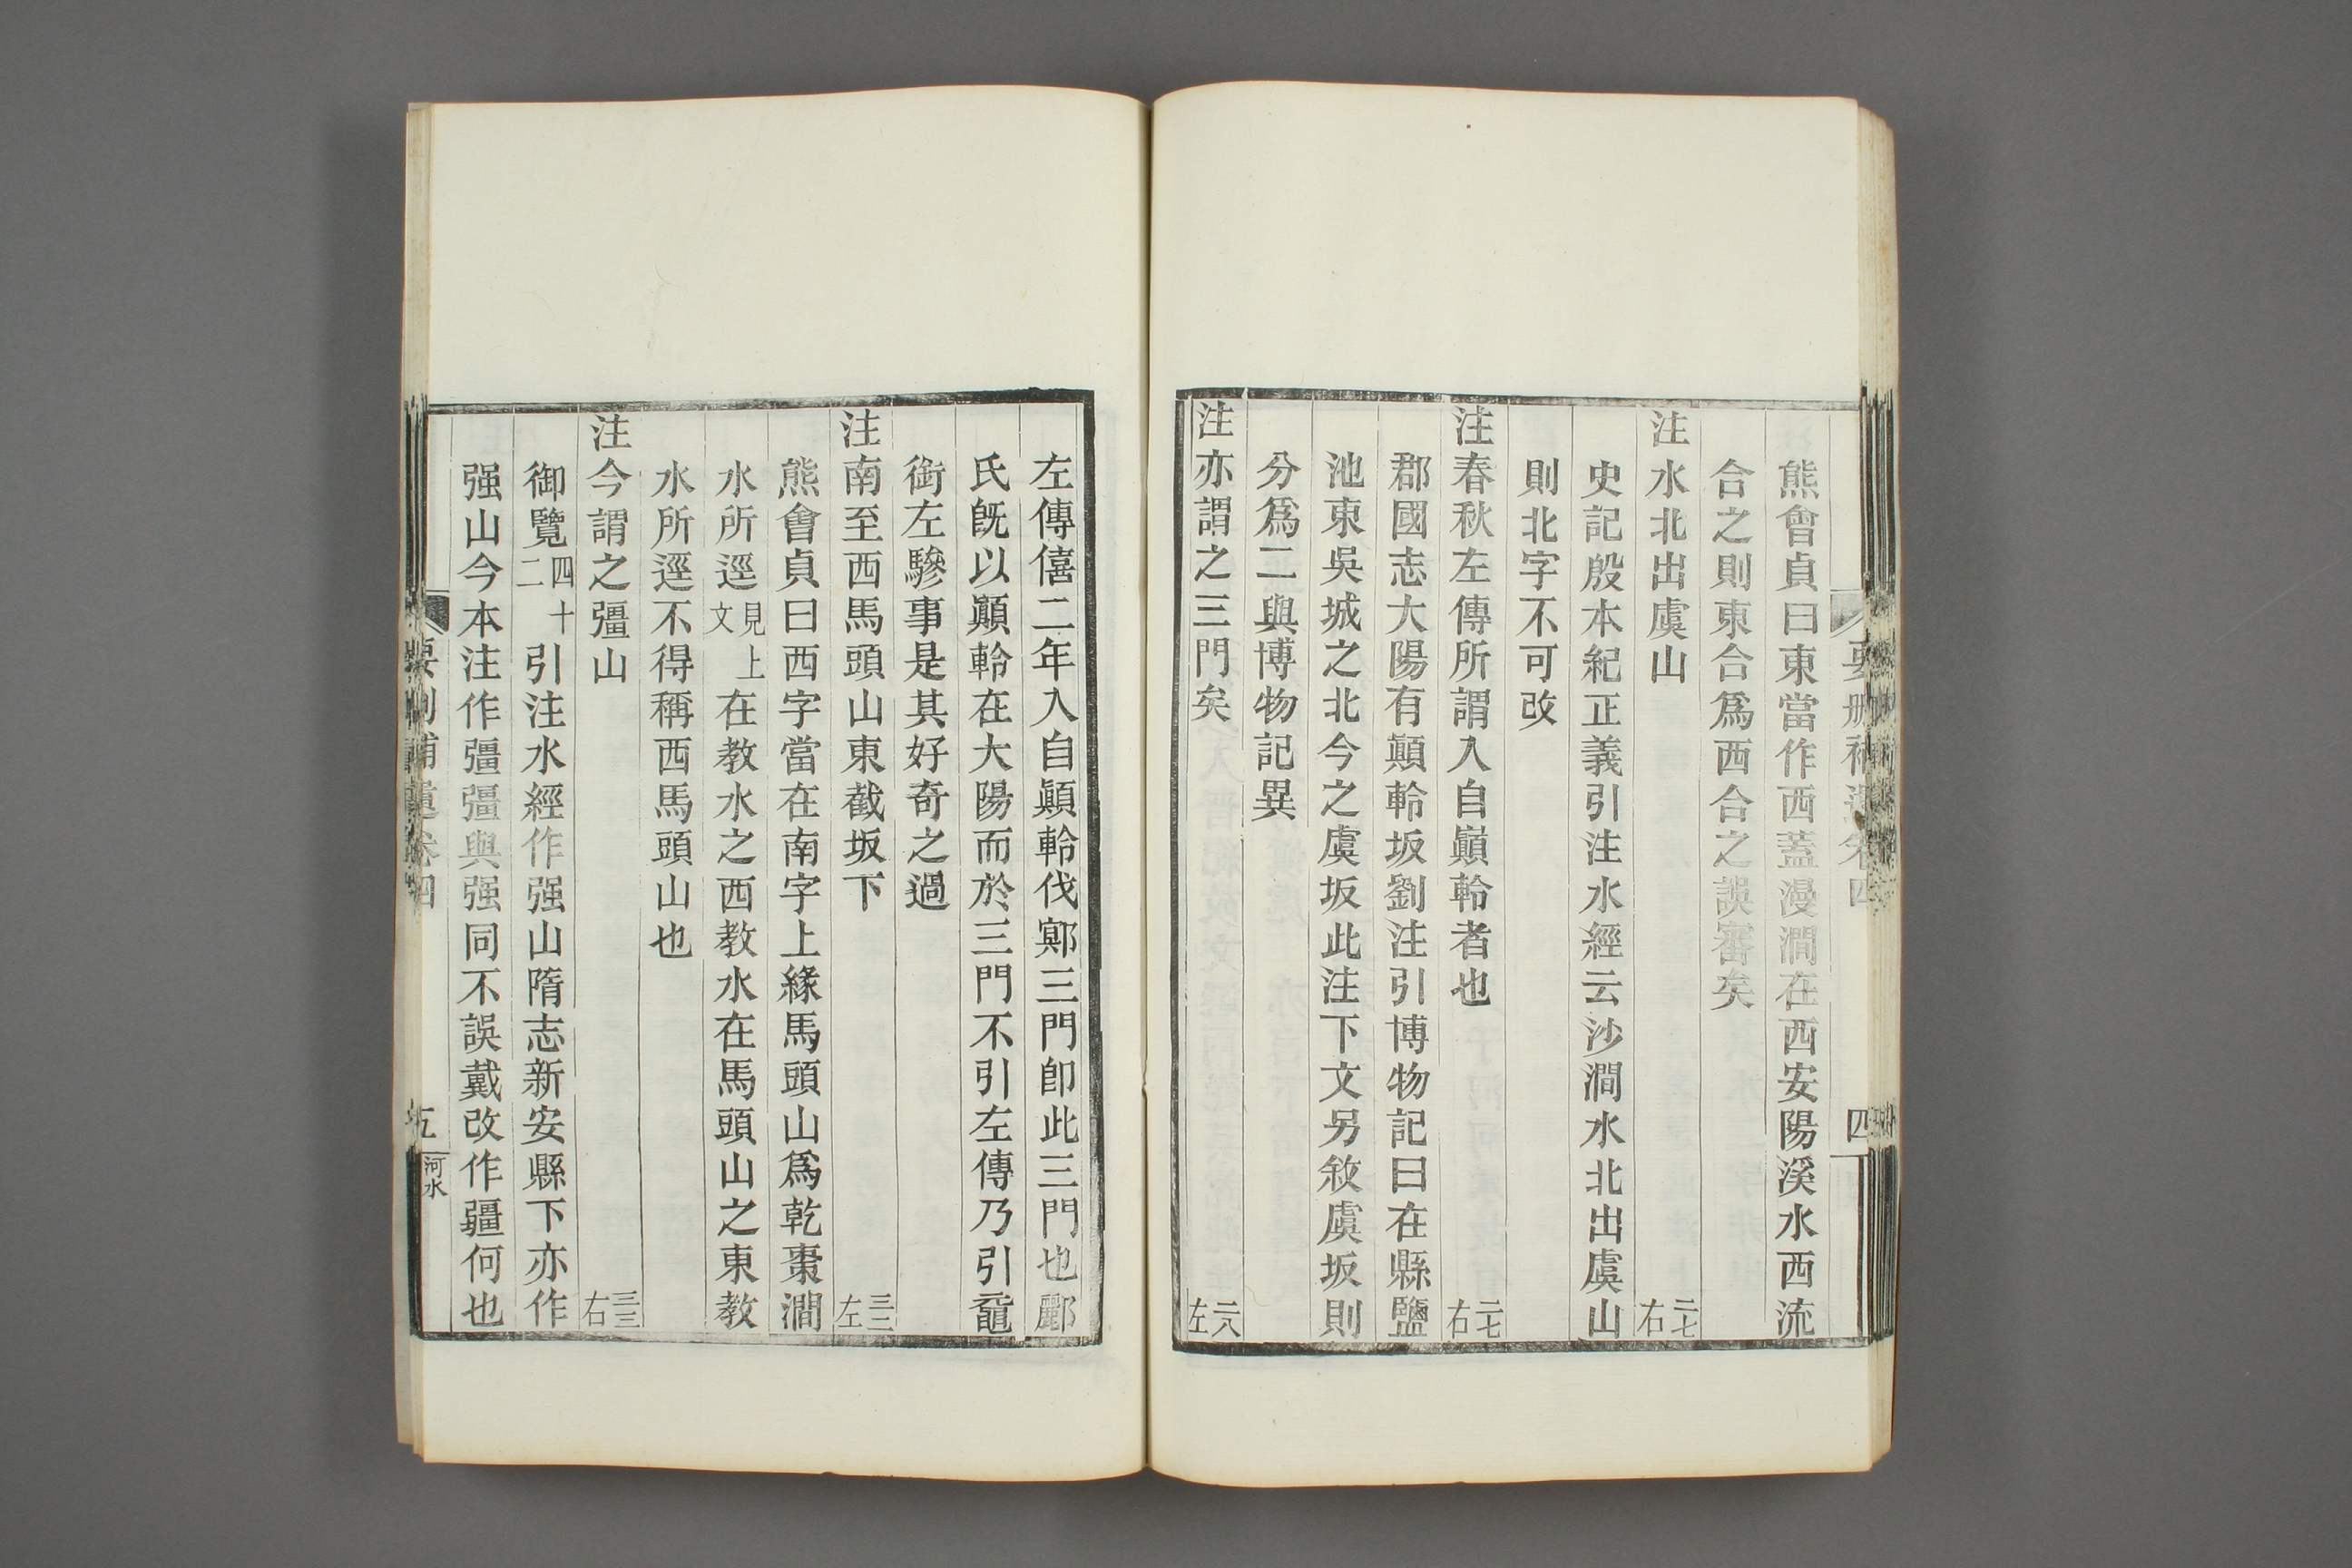 熊會貞曰東當作西蓋漫澗在西安陽溪水西流
合之則東合爲西合之誤審矣
注水北出虞山 二七右
史記殷本紀正義引注水經云沙澗水北出虞山
則北字不可改
注春秋左傳所謂入自巔軨者也 二七右
郡國志大陽有顚軨坂劉注引博物記曰在縣鹽
池東吳城之北今之虞坂此注下文另敘虞坂則
分爲二與博物記異
注亦謂之三門矣 二八左
左傳僖二年入自顚軨伐鄍三門卽此三門也酈
氏旣以顚軨在大陽而於三門不引左傳乃引黿
銜左驂事是其好奇之過
注南至西馬頭山東截坂下 三二左
熊會貞曰西字當在南字上緣馬頭山爲乾棗澗
水所逕見上文在教水之西教水在馬頭山之東教
水所逕不得稱西馬頭山也
注今謂之彊山 三三右
御覽四十二引注水經作强山隋志新安縣下亦作
强山今本注作彊彊與强同不誤戴改作疆何也
要刪補遺卷四
四
要刪補遺卷四
五
河水